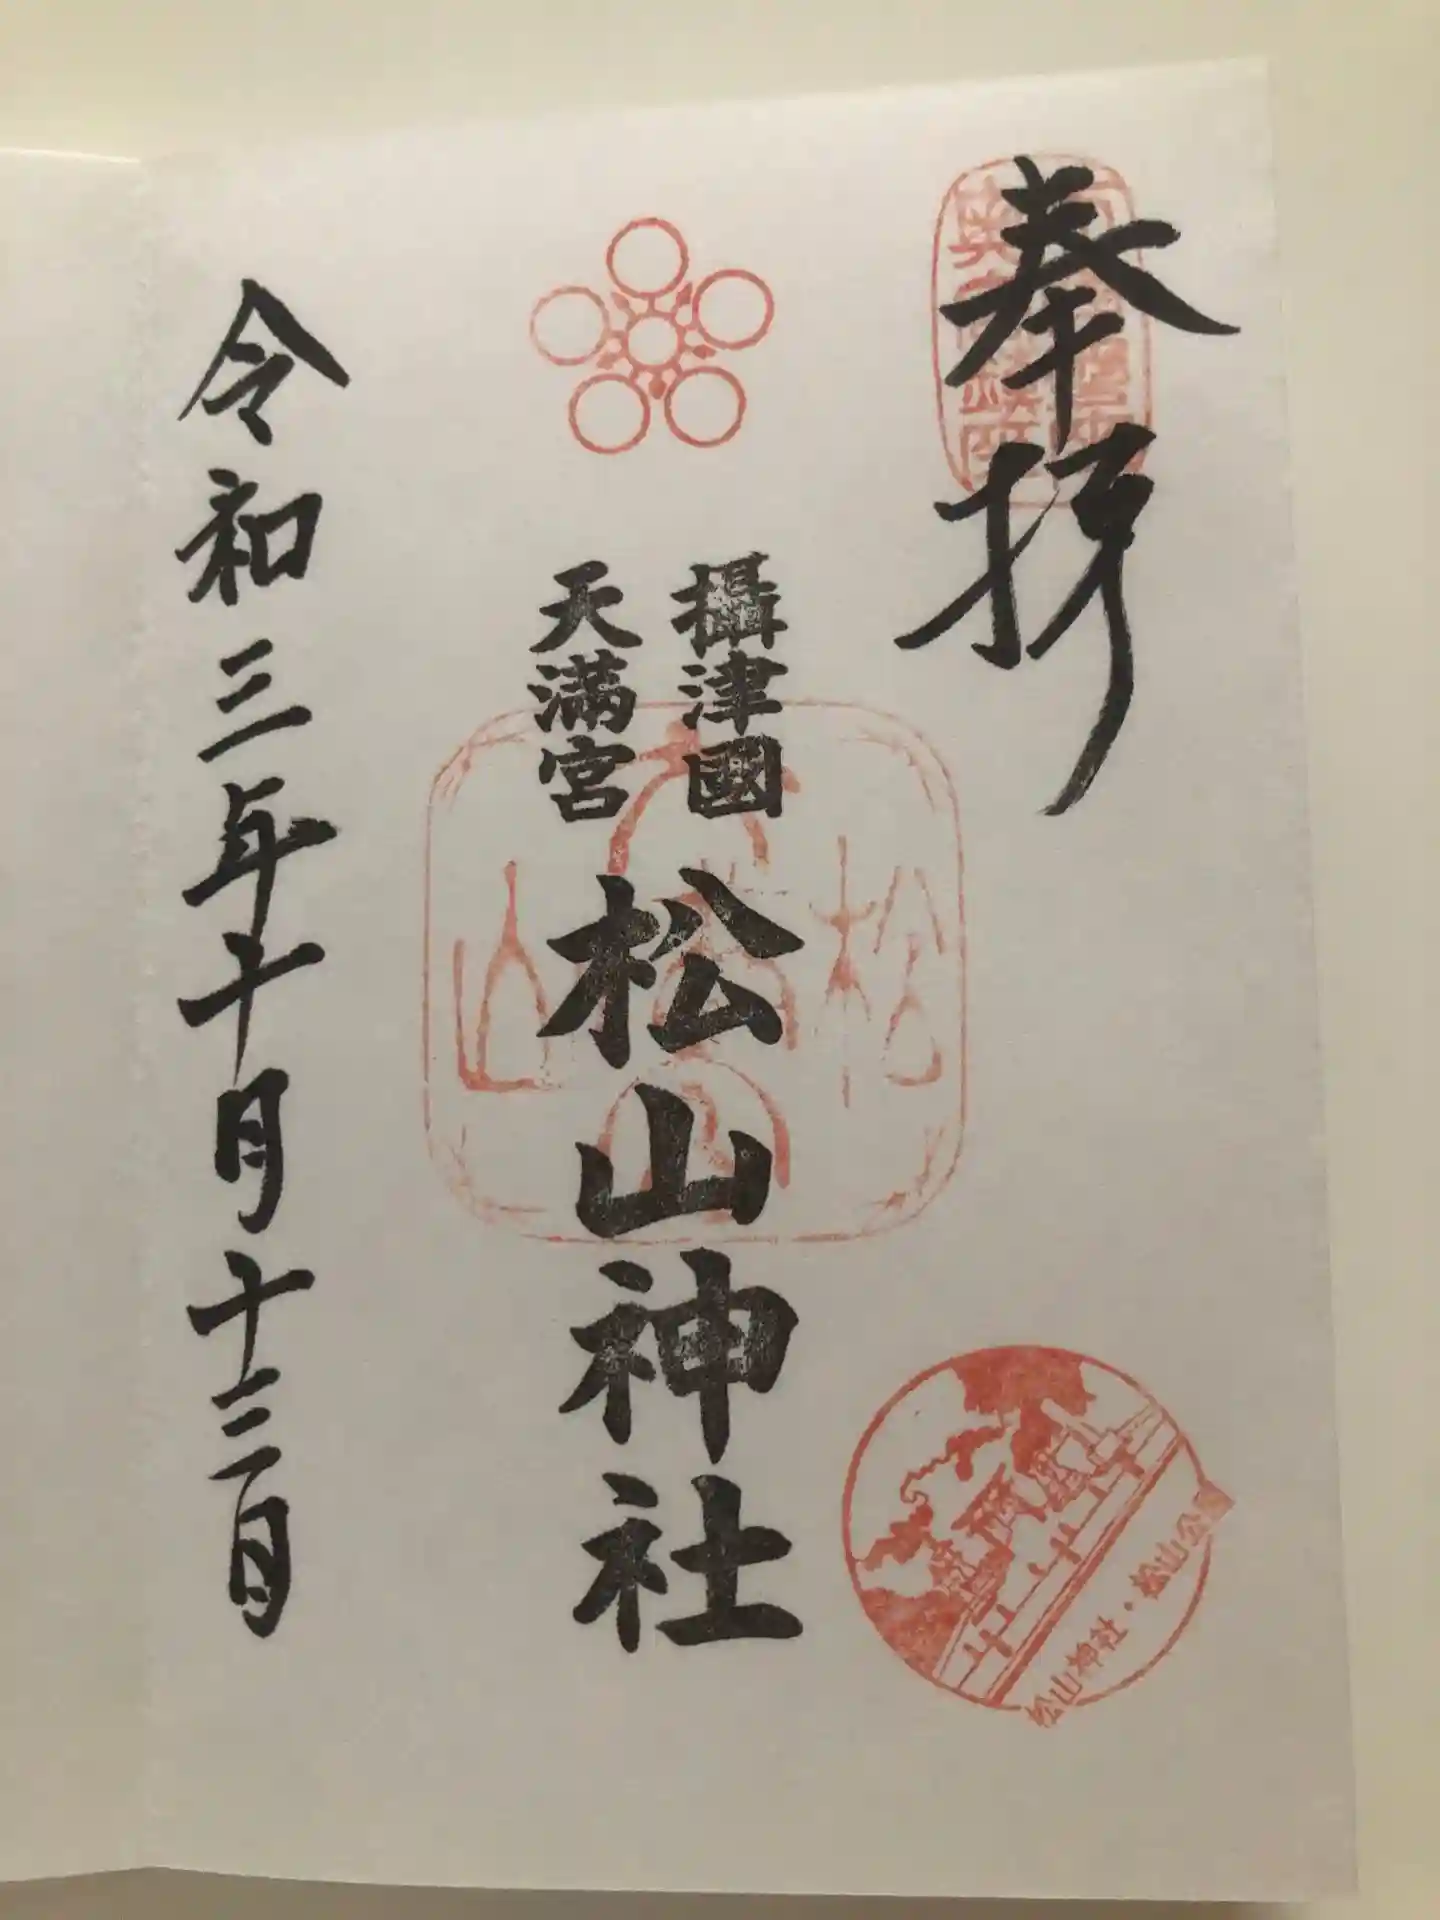 奉拝
攝津國
天満宮
松山神社
令和三年十月十三日
松山神社・松山公園
松
山